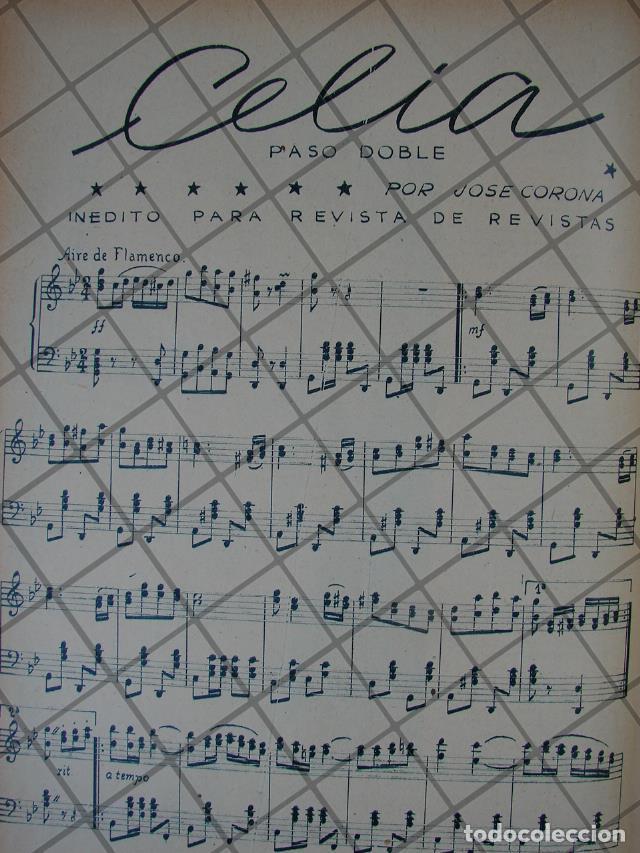 Celia
PASO DOBLE
POR JOSE CORONA
INEDITO PARA REVISTA DE REVISTAS
Aire de Flamenco.
ff
mf
1ª
2
rit.
a tempo
todocoleccion